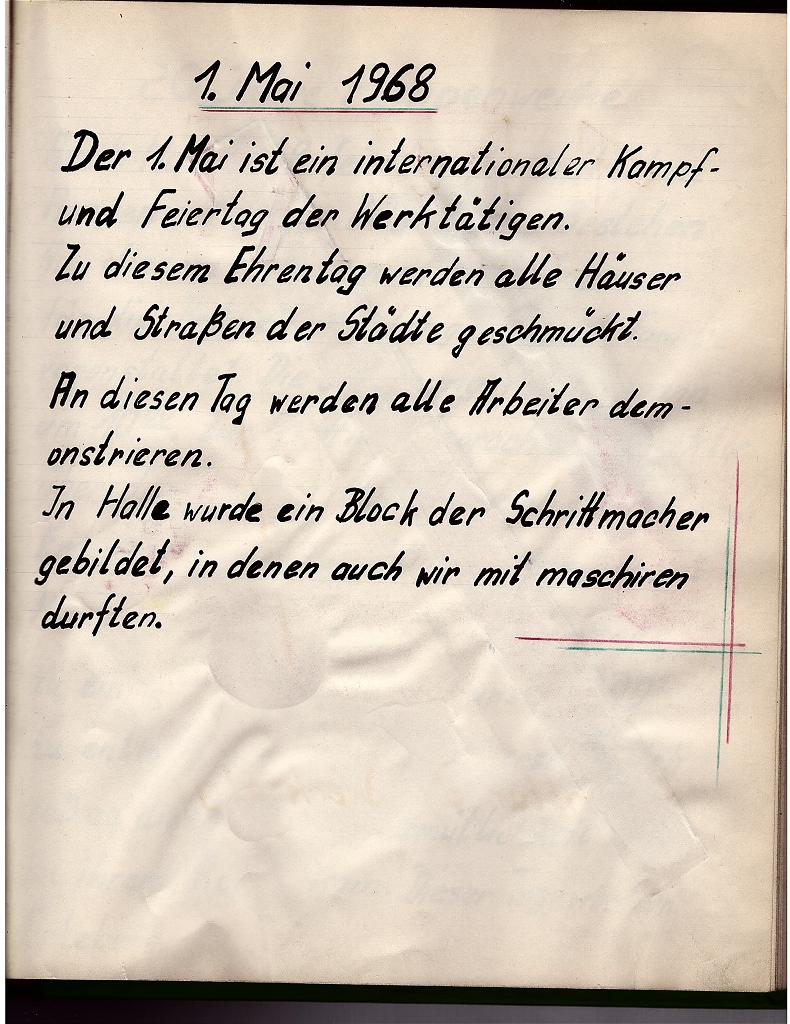 1. Mai 1968
Der 1. Mai ist ein internationaler Kampf-
und Feiertag der Werktätigen.
Zu diesem Ehrentag werden alle Häuser
und Straßen der Städte geschmückt.
An diesen Tag werden alle Arbeiter dem-
onstrieren.
In Halle wurde ein Block der Schrittmacher
gebildet, in denen auch wir mit maschiren
durften.